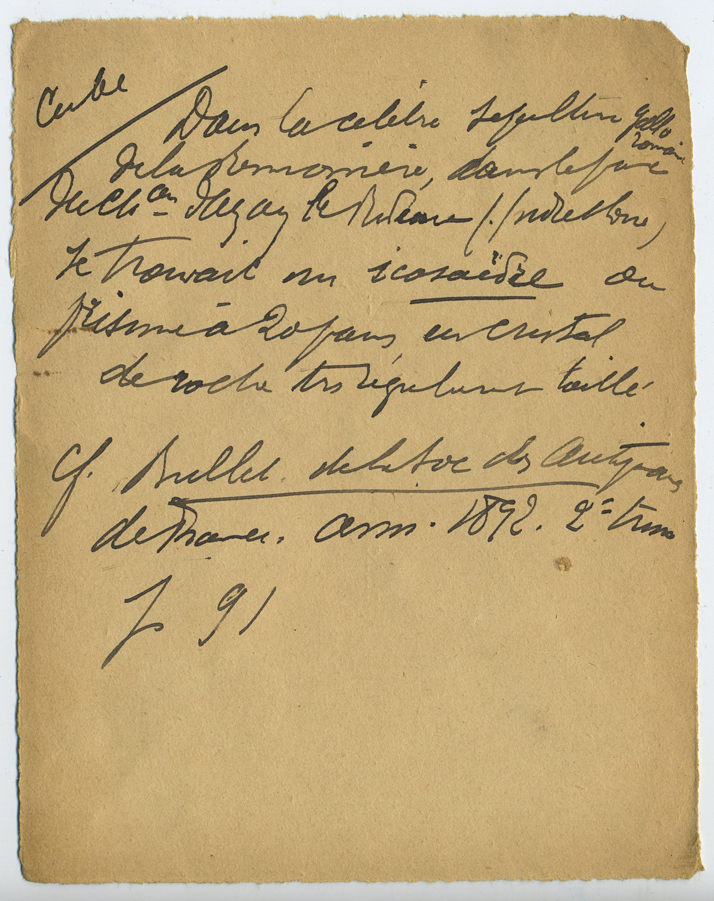 Cube
Dans la celèbre sépulture gallo
romaine
de la Remonière, dans le parc
du chau d'Azay le Rideau (Indre et Loire)
se trouvait un icosaèdre ou
prisme à 20 pans en cristal
de roche très régulièrement taillé
Cf. Bullet. de la Soc des Antiquaires
de France. ann. 1892. 2e trim
p 91